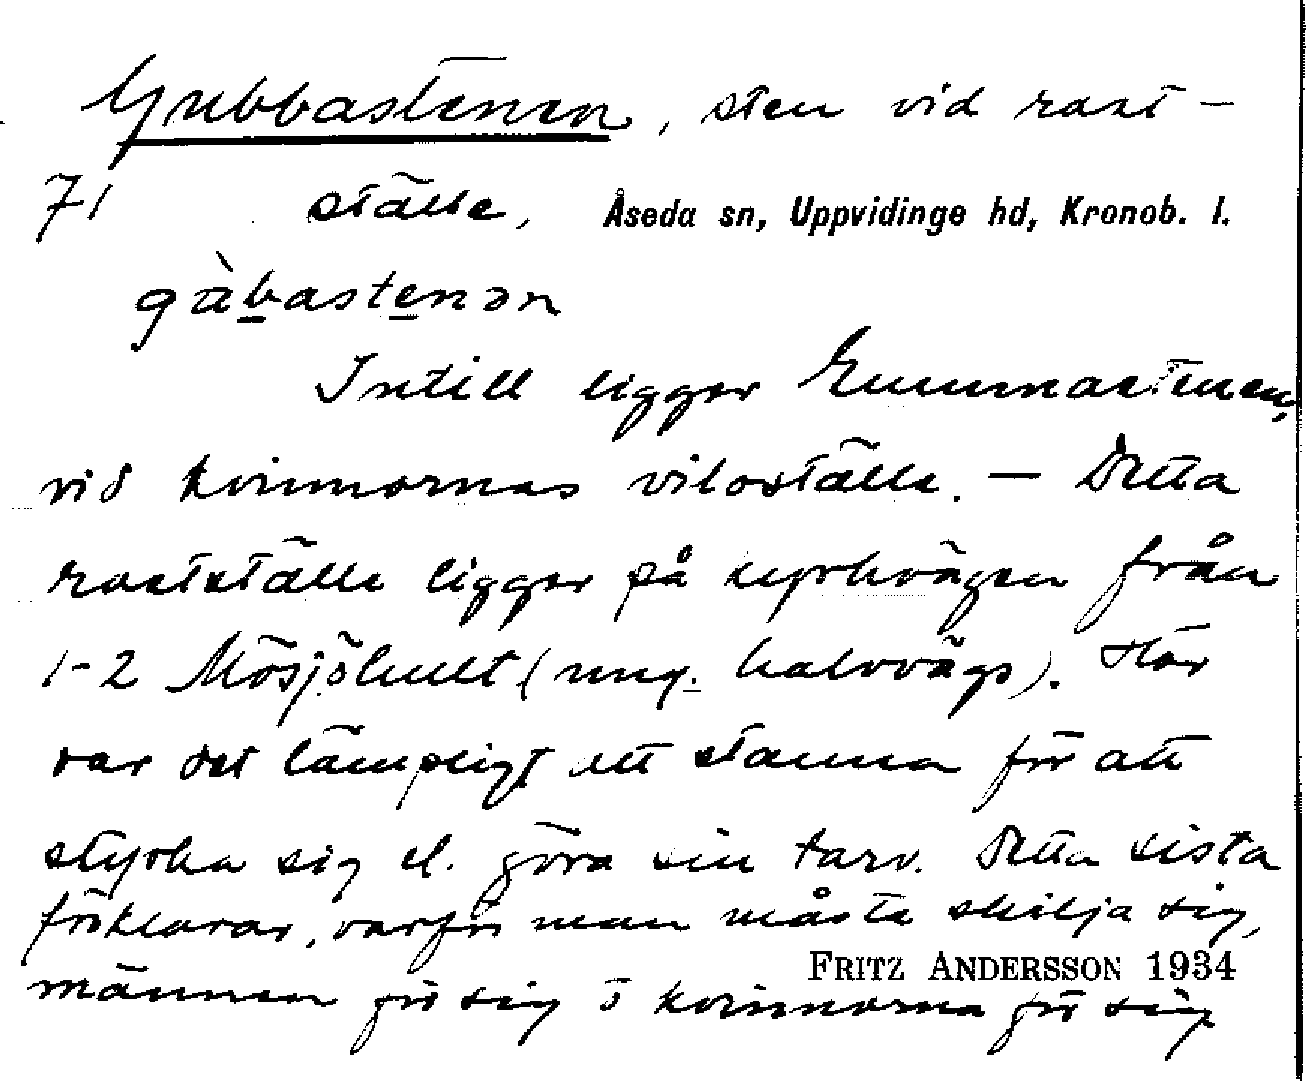 Gubbastenen, sten vid rast-
71 ställe, Åseda sn, Uppvidinge hd, Kronob. l.
gàbastenən
Intill ligger
vid kvinnornas viloställe. — Detta
rastställe ligger på kyrkvägen från
1-2 Mösjöhult (ung. halvvägs). Här
var det lämpligt att stanna för att
styrka sig el. göra sin tarv. Detta sista
förklarar, varför man måste skilja sig,
FRITZ ANDERSSON 1934
männen för sig o kvinnorna för sig